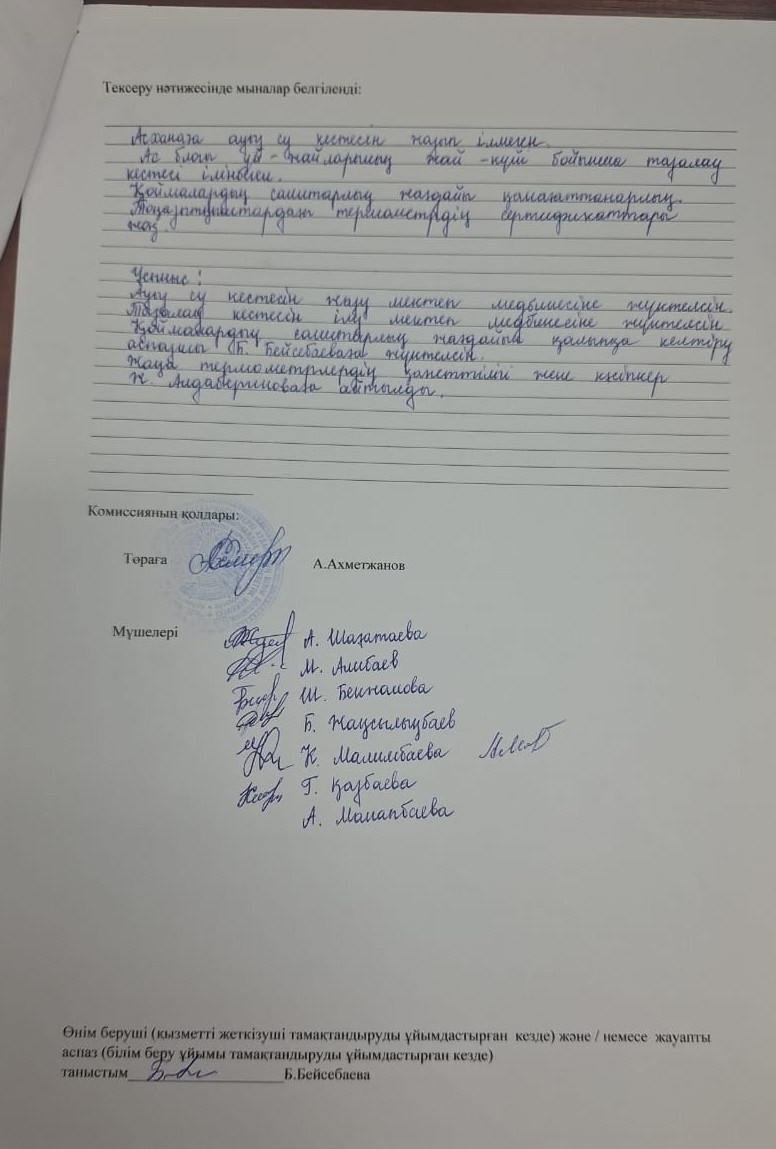 Тексеру нәтижесінде мыналар белгіленді:
Асханаға ауыз су кестесін жазып ілмеген.
Ас блогы үй-жайларының жай-күйі бойынша тазалау
кестесі ілінбеген.
Қоймалардың санитарлық жағдайы қанағаттанарлық.
Тоңазытқыштардағы термометрдің сертификаттары
жоқ.
Ұсыныс!
Ауыз су кестесін жазу мектеп медбикесіне жүктелсін.
Тазалау кестесін ілу мектеп медбикесіне жүктелсін
Қоймалардың санитарлық жағдайын қалыпқа келтіру
аспазшы Б. Бейсебаеваға жүктелсін.
Жаңа термометрлердің қажеттілігі жеке кәсіпкер
К. Алдабергеноваға айтылды.
Комиссияның қолдары:
Төраға А.Ахметжанов
Мүшелері А. Шағатаева
М. Алибаев
Ш. Бекжанова
Б. Жақсылықбаев
К. Малимбаева
Г. Қазбаева
А. Манапбаева
Өнім беруші (қызметті жеткізуші тамақтандыруды ұйымдастырған кезде) және / немесе жауапты
аспаз (білім беру ұйымы тамақтандыруды ұйымдастырған кезде)
таныстым Б.Бейсебаева